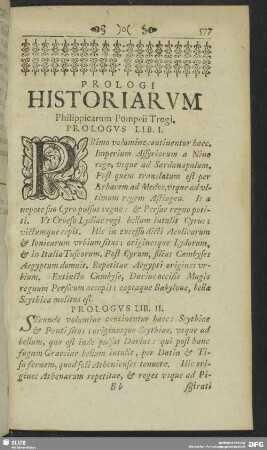 577
PROLOGI
HISTORIARVM
Philippicarum Pompeii Trogi.
PROLOGVS LIB. I.
PRimo volumine continentur haec.
Imperium Assyriorum a Nino
rege, vsque ad Sardanapalum,
Post quem translatum est per
Arbacem ad Medos, vsque ad vl-
timum regem Astiagen. Is a
nepote suo Cyro pulsus regno: & Persae regno poti-
ti. Vt Croeso Lydiae regi bellum intulit Cyrus:
victumque cepit. Hic in excessu dicti Aeolicarum
& Ionicarum vrbium situs: originesque Lydorum,
& in Italia Tuscorum, Post Cyrum, filius Cambyses
Aegyptum domuit. Repetitae Aegypti origines vr-
bium. Extincto Cambyse, Darius occisis Magis
regnum Persicum accepit: captaque Babylone, bella
Scythica molitus est.
PROLOGVS LIB. II.
SEcundo volumine continentur haec: Scythiae
& Ponti situs: originesque Scythiae, vsque ad
bellum, quo est inde pulsus Darius: qui post hanc
fugam Graeciae bellum intulit, per Datin & Ti-
safernem, quod soli Athenienses tenuere. Hic ori-
gines Athenarum repetitae, & reges vsque ad Pi-
B b sistrati
SLUB